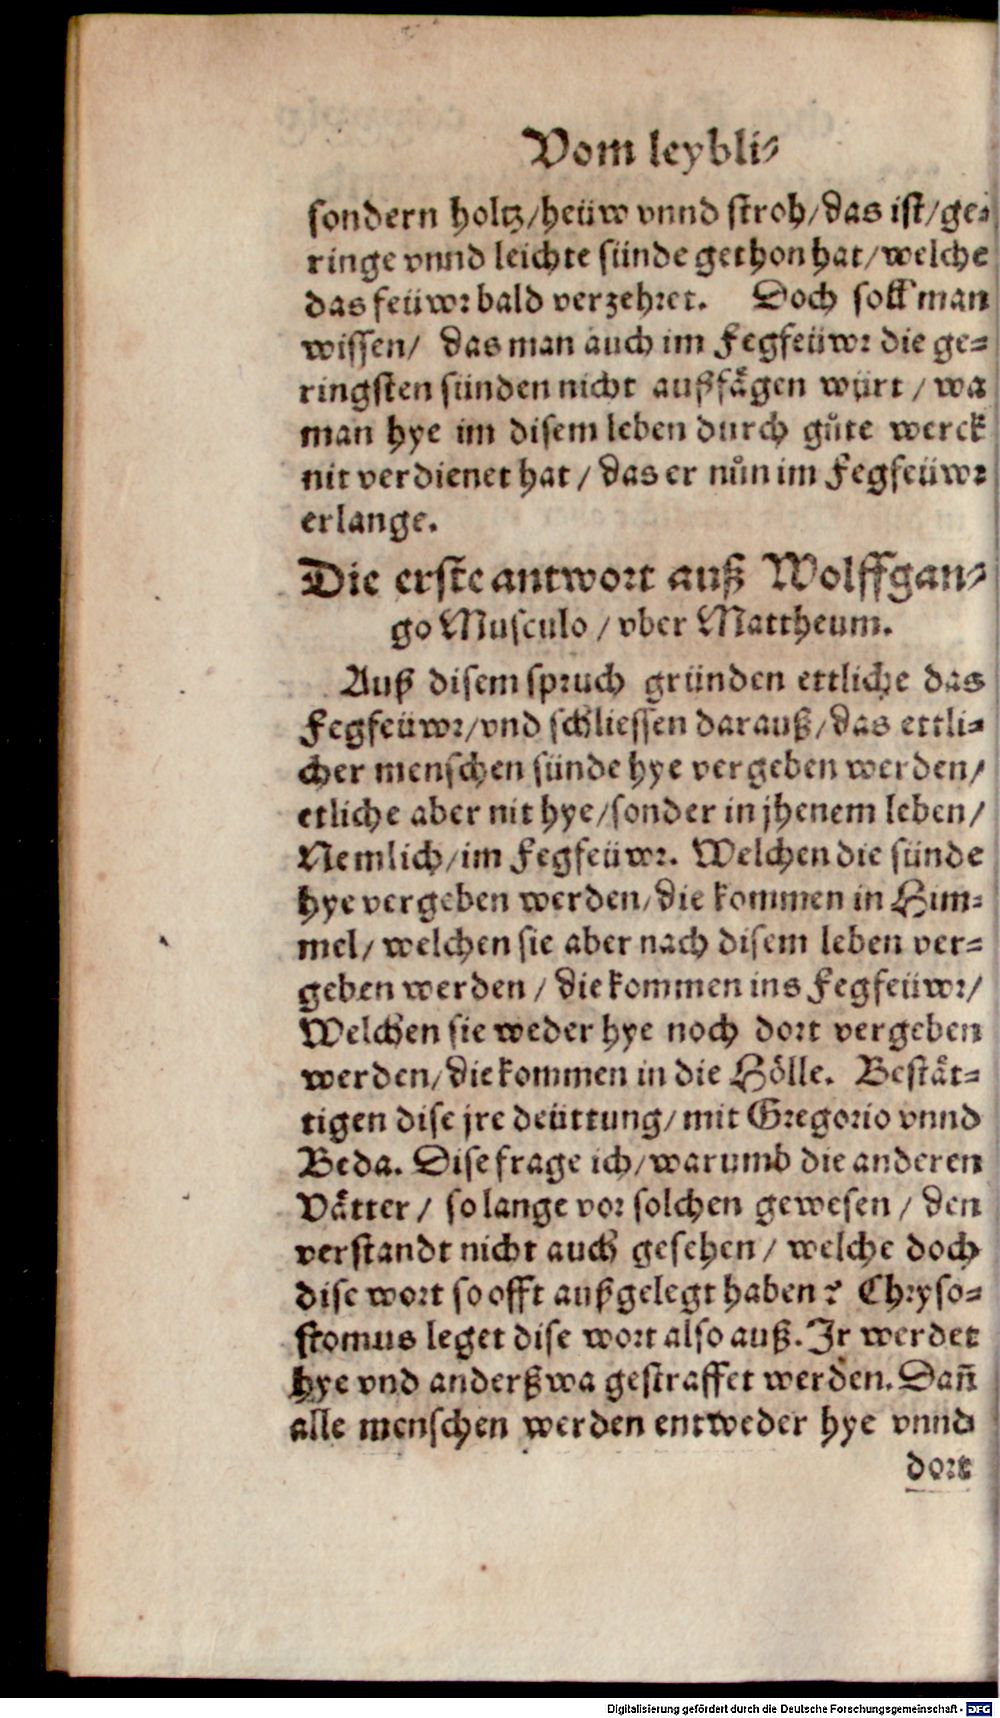 Vom leybli⸗
sondern holtz/heüw vnnd stroh/das ist/ge⸗
ringe vnnd leichte sünde gethon hat/welche
das feüwr bald verzehret. Doch soll man
wissen/ das man auch im Fegfeüwr die ge⸗
ringsten sünden nicht außfågen würt / wa
man hye im disem leben durch gůte werck
nit verdienet hat / das er nůn im Fegfeüwr
erlange.
Die erste antwort auß Wolffgan⸗
go Musculo / vber Mattheum.
Auß disem spruch gründen ettliche das
Fegfeüwr/vnd schliessen darauß/das ettli⸗
cher menschen sünde hye vergeben werden/
etliche aber nit hye/sonder in jhenem leben/
Nemlich/im Fegfeüwr. Welchen die sünde
hye vergeben werden/die kommen in Him⸗
mel/ welchen sie aber nach disem leben ver⸗
geben werden / die kommen ins Fegfeüwr/
Welchen sie weder hye noch dort vergeben
werden/die kommen in die Hölle. Bestät⸗
tigen dise jre deüttung/ mit Gregorio vnnd
Beda. Dise frage ich/warumb die anderen
Våtter / so lange vor solchen gewesen / den
verstandt nicht auch gesehen / welche doch
dise wort so offt außgelegt haben? Chryso⸗
stomus leget dise wort also auß. Jr werdet
hye vnd anderßwa gestraffet werden. Dañ
alle menschen werden entweder hye vnnd
dort
Digitalisierung gefördert durch die Deutsche Forschungsgemeinschaft - DFG